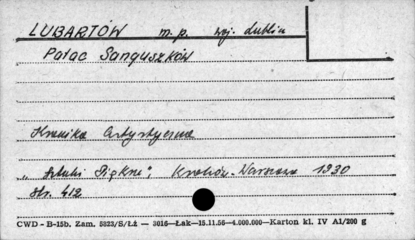 LUBARTÓW m.p. woj. Lublin
Pałac Sanguszków
Kronika Artystyczna
„Sztuki Piękne", Kraków-Warszawa 1930
str. 412
CWD - B-15b. Zam. 5823/S/Łż — 3016—Łak—15.11.56—4.000.000—Karton kl. IV A1/200 g